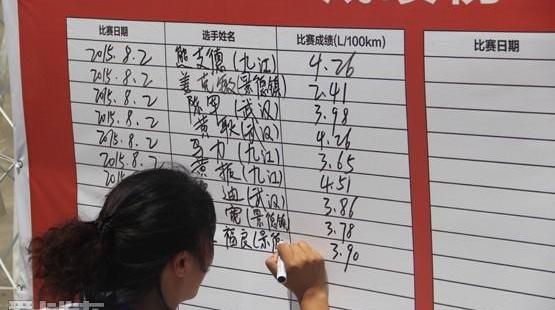 比赛日期 选手姓名 比赛成绩(L/100km) 比赛日期
2015.8.2 熊支德(九江) 4.26
2015.8.2 姜克敏(景德镇) 2.41
2015.8.2 陈罗(武汉) 3.98
2015.8.2 黄耿(武汉) 4.26
2015.8.2 马力(九江) 3.65
2015.8.2 (九江) 4.51
2015 迪(武汉) 3.86
(景德镇) 3.78
福良(景德 3.90